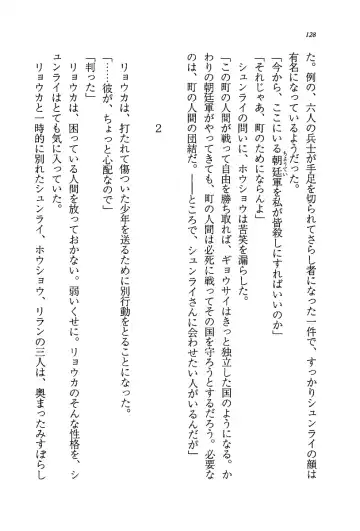 128
た。例の、六人の兵士が手足を切られてさらし者になった一件で、すっかりシュンライの顔は
有名になっているようだった。
「今から、ここにいる朝廷軍を私が皆殺しにすればいいのか」
「それじゃあ、町のためにならんよ」
シュンライの問いに、ホウショウは苦笑を漏らした。
「この町の人間が戦って自由を勝ち取れば、ギョウサイはきっと独立した国のようになる。か
わりの朝廷軍がやってきても、町の人間は必死に戦ってその国を守ろうとするだろう。必要な
のは、町の人間の団結だ。――ところで、シュンライさんに会わせたい人がいるんだが」
2
リョウカは、打たれて傷ついた少年を送るために別行動をとることになった。
「……彼が、ちょっと心配なので」
「判った」
リョウカは、困っている人間を放っておかない。弱いくせに。リョウカのそんな性格を、シ
ュンライはとても気に入っていた。
リョウカと一時的に別れたシュンライ、ホウショウ、リランの三人は、奥まったみすぼらし